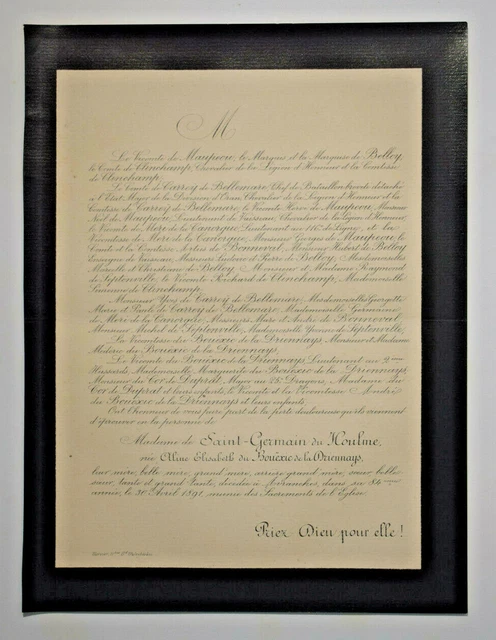 M
Le Vicomte de Maupeou, le Marquis et la Marquise de Belloy,
le Comte de Clinchamp, Chevalier de la Légion d'Honneur et la Comtesse
de Clinchamp,
Le Comte de Carrey de Bellemare, Chef de Bataillon breveté détaché
à l'Etat Major de la Division d'Oran, Chevalier de la Légion d'Honneur et la
Comtesse de Carrey de Bellemare, le Vicomte de Maupeou, Monsieur
de Maupeou, Lieutenant de Vaisseau, Chevalier de la Légion d'Honneur,
le Vicomte de More de la Lieutenant au de Ligne, et la
Vicomtesse de More de la Monsieur Georges de Maupeou, le
Comte et la Comtesse de Bonneval, Monsieur Hubert de Belloy
Enseigne de Vaisseau, Messieurs et Pierre de Belloy, Mesdemoiselles
Marcelle et Christiane de Belloy, Monsieur et Madame Raymond
de Septenville, le Vicomte Richard de Clinchamp, Mademoiselle
de Clinchamp,
Monsieur Yves de Carrey de Bellemare, Mesdemoiselles Georgette
Marie et Paule de Carrey de Bellemare, Mademoiselle Germaine
de More de la Messieurs Marc et André de Bonneval,
Monsieur Michel de Septenville, Mademoiselle Yvonne de Septenville,
La Vicomtesse du Bouëxic de la Driennays, Monsieur et Madame
du Bouëxic de la Driennays,
Le Vicomte du Bouëxic de la Driennays, Lieutenant au 2ème
Hussards, Mademoiselle Marguerite du Bouëxic de la Driennays,
Monsieur du Cor de Duprat, Major au 25e Dragons, Madame du
Cor de Duprat et leurs enfants, le Vicomte et la Vicomtesse André
du Bouëxic de la Driennays et leurs enfants,
Ont l'honneur de vous faire part de la perte douloureuse qu'ils viennent
d'éprouver en la personne de
Madame de Saint-Germain du Houlme,
née Aline Elisabeth du Bouëxic de la Driennays,
leur mère, belle mère, grand'mère, arrière grand'mère, sœur, belle
sœur, tante et grand'tante, décédée à Avranches, dans sa 84ème
année, le 30 Avril 1891, munie des Sacrements de l'Eglise.
Priez Dieu pour elle!